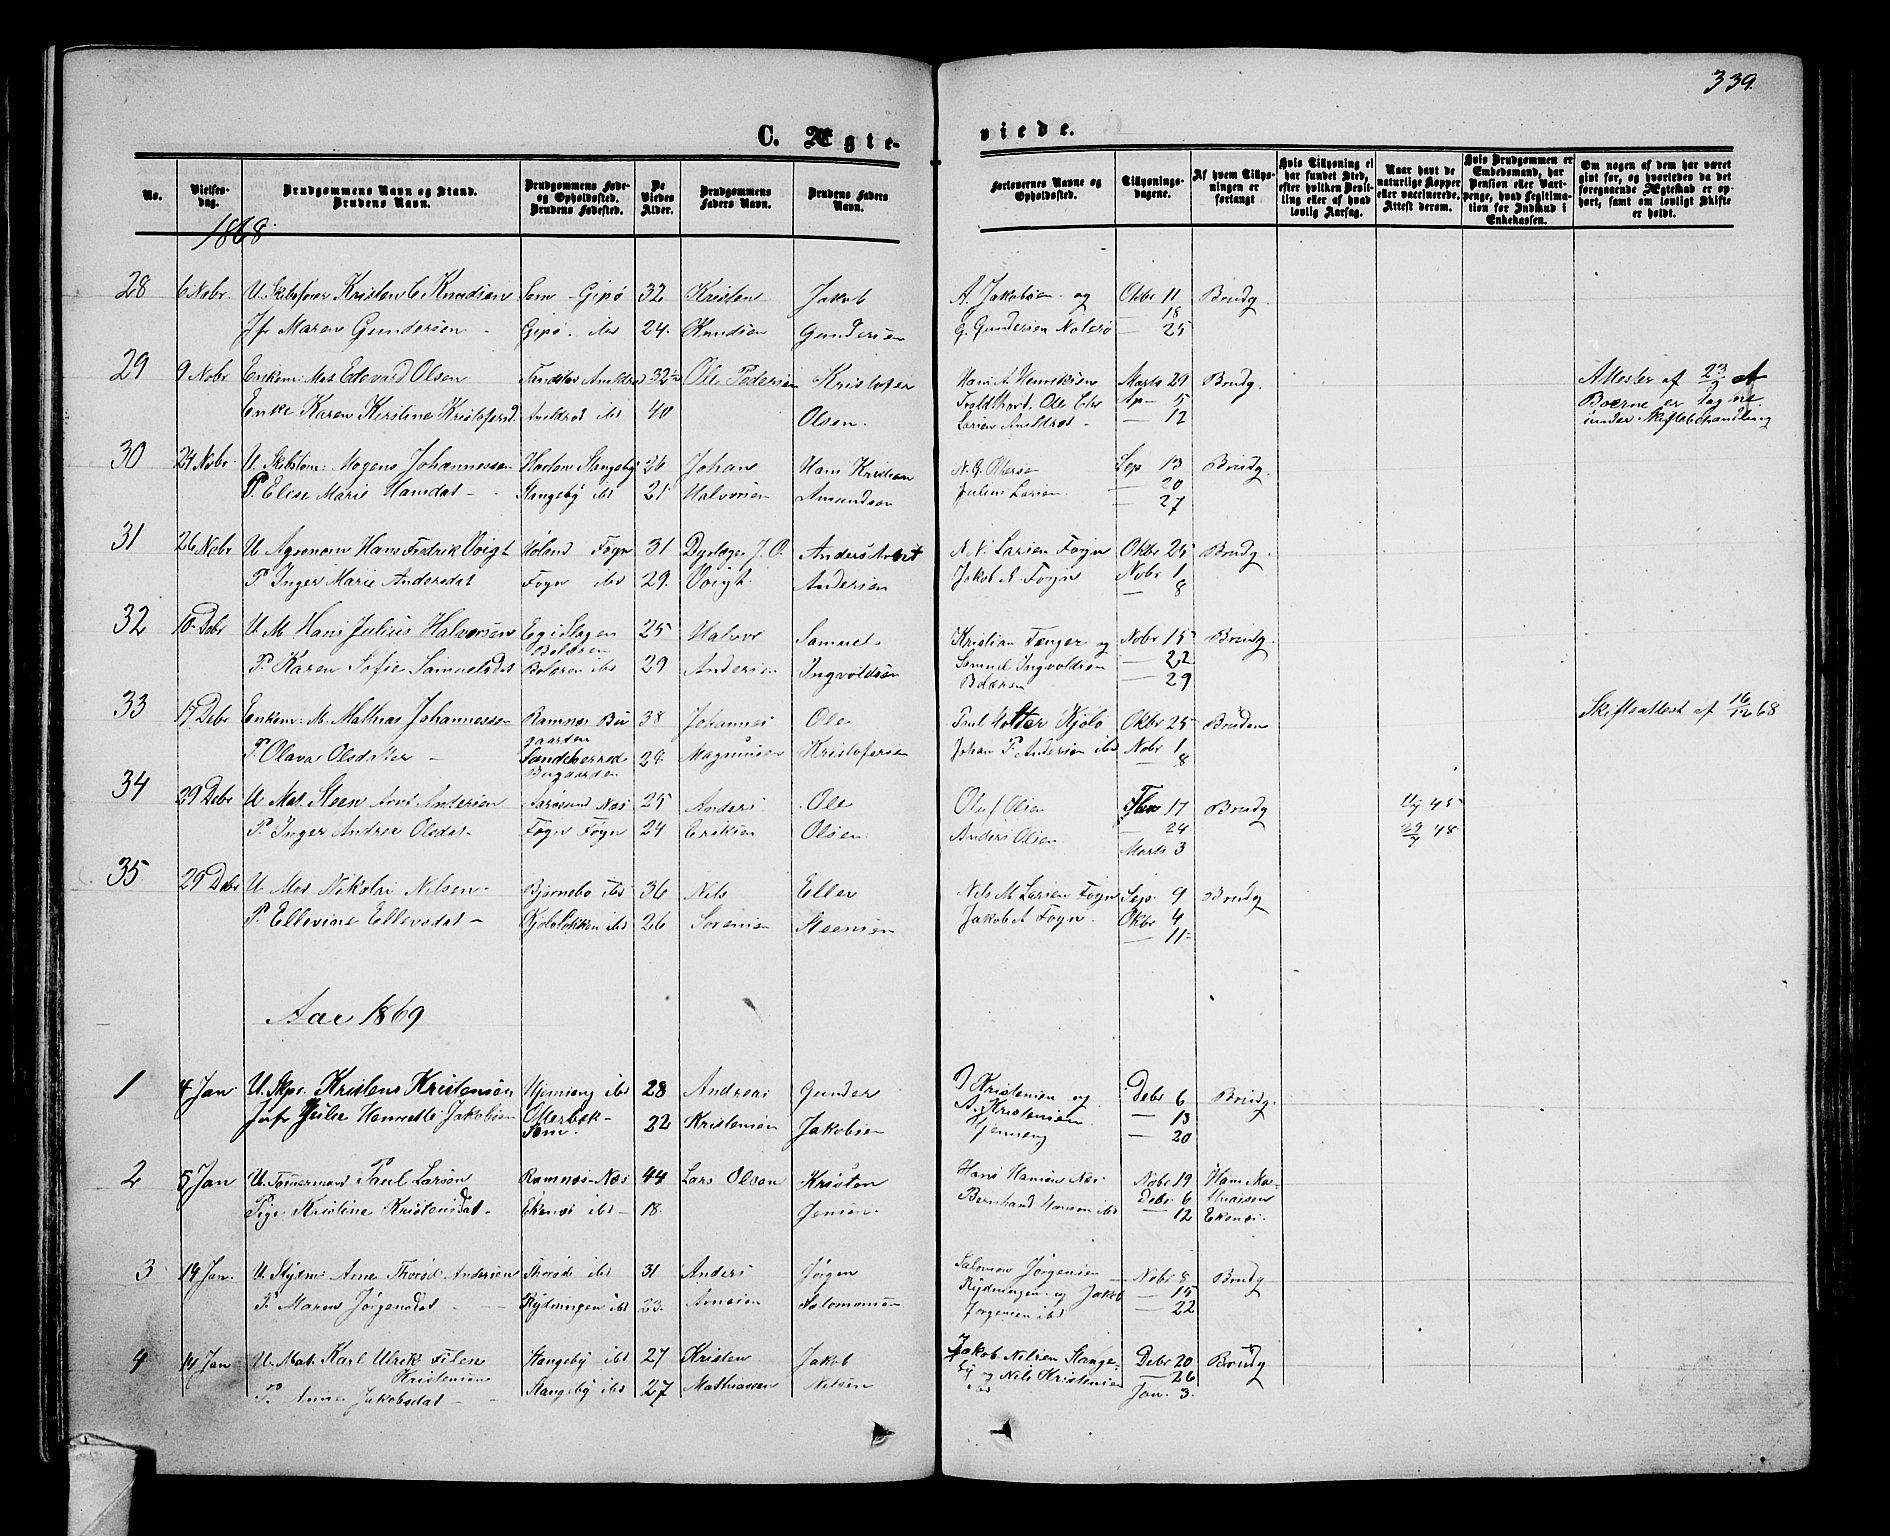 339.
C. Ægte-
viede.
No.
Vielses-
dag.
Brudgommens Navn og Stand.
Brudens Navn.
Brudgommens Føde-
og Opholdssted.
Brudens Fødested.
De
Viedes
Alder.
Brudgommens
Faders Navn.
Brudens Faders
Navn.
Forlovernes Navne og
Opholdssted.
Tillysnings-
dagene.
Af hvem Tillys-
ningen er
forlangt
Hvis Tillysning ei
har fundet Sted,
efter hvilken Bevil-
ling eller af hvad
lovlig Aarsag.
Naar havt de
naturlige Kopper
eller vaccinerede.
Attest derom.
Hvis Brudgommen er
Embedsmand, har
Pension eller Vart-
penge, hvad Legitima-
tion for Indskud i
Enkekassen.
Om nogen af dem har været
gift før, og hvorledes da det
foregaaende Ægteskab er op-
hørt, samt om lovligt Skifte
er holdt.
1868.
28 6 Nobr. U. Skibsfører Kristen C. Knudsen Sem Gipø 32 Kristen Jakob A. Jakobsen og Oktbr 11 Brudg.
Jfr Maren Gundersen Gipø ibd 24. Knudsen Gundersen G. Gundersen Nøterø 18
— 25
29 9 Nobr Enkem: Mat Edevard Olsen Arildrød 32 Ole Pedersen Kristofer Hans A. Henriksen Marts 29 Brudg. Attester af 23/9
Enke Karen Kirstine Kristofersd. Arildrød ibd 40 Olsen. Ole Ap— 5 Boerne er tagne
Larsen Arildrød — 12 under Skiftebehandling
30 24 Nobr. U. Skibstøm: Mogens Johannessen Stangeby 26 Johans Hans Kristian N. G. Sep 13 Brudg.
P. Elise Marie Hansdat — Stangeby ibd 21 Halvorsen Amundsen Julius Larsen. — 20
— 27
31 26 Nobr U. Agronom Hans Fredrik Voigt Høland Føgn 31 J. O. Anders N. N. Larsen Føgn Oktbr 25 Brudg.
P. Inger Marie Andersdat Føgn ibd 29. Voigt. Andersen Jakob A Føgn Nobr 1
— 8
32 10 Debr U. M Hans Julius Halvorsen Bolæren 25 Halvor Samuel Kristian Tenger og Nobr 15 Brudg.
P. Karen Sofie Samuelsdat Bolæren ibd 29 Andersen Ingvoldsen Samuel Ingvoldsen — 22
Bolæren — 29
33 17 Debr Enkem: M. Mathias Johannessen Ramnes Bu 38 Johannes Ole Kjølø Oktbr 25 Bruden Skifteattest af 16/12 68
gaarden
P. Olava Olsdatter Sandeherred 29. Magnussen Kristofersen Johan P. Andersen ibd Nobr 1
Bugaarden — 8
34 29 Debr U. Mat. Steen Andersen Næs 25 Anders Ole Oluf Olsen 17 Brudg 45
P. Inger Andrea Olsdat— Føgn Føgn 24 Eriksen Olsen Anders Olsen — 24 48
Marts 3
35 29 Debr U. Mat Nikolai Nilsen Bjørnebo ibd 36 Nils Ellev Nils M. Larsen Føgn Sep. 9 Brudg
P. Ellevine Ellevsdat — ibd 26 Sørensen Steensen Jakob A Føgn. Oktbr 4
— 11
Aar 1869
1 4 Jan U. Skpr. Kristens Kristensen Hjemseng ibd 28 Andreas Gunder J Kristensen og Debr 6 Brudg.
Jofr Julie Henrette Jakobsen Sem. 22 Kristensen Jakobsen A. Kristensen — 13
Hjemseng — 20
2 5 Jan U. Tømermand Paul Larsen Ramnes-Næs 44 Lars Olsen Kristen Hans Hansen Næs Nobr 19 Hans Ma-
Pige Kristine Kristensdat. Ekenes ibd — 18. Jensen. Bernhard Hansen ibd Debr 6 thiasen
— 12 Ekenes.
3 14 Jan. U. Arne Thorød Andersen Thorød ibd 31 Anders Jørgen Salomon Jørgensen Nobr 8 Brudg
P. Maren Jørgensdat Rydningen ibd 23. Arnesen Salomonsen Rydningen og Jakob — 15
Jørgensen ibd — 22
4 14 Jan U. Mat. Karl Ulrik Stangeby ibd 27 Kristen Jakob Jakob Nilsen Stange- Debr 20 Brudg
Kristensen by og Nils Kristensen — 26
P. Anne Jakobsdat Stangeby ibd 27 Mathiassen Nilsen ibd Jan. 3.